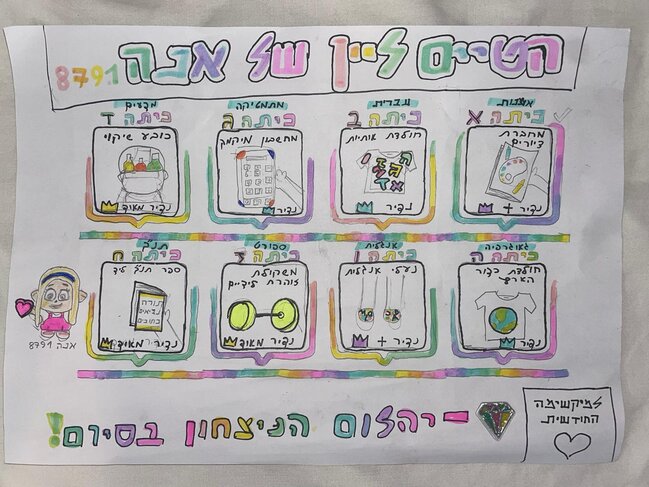 הטיים ליין של אנה 8791
אמנות
כיתה א
מחברת
ציורים
נדיר +
עברית
כיתה ב
חולצת אותיות
נדיר
מתמטיקה
כיתה ג
מחשבון מיקמק
נדיר
מדעים
כיתה ד
כובע שיקוי
נדיר מאוד
גאוגרפיה
כיתה ה
חולצת כדור
הארץ
נדיר
אנגלית
כיתה ו
נעלי אנגלית
נדיר +
ספורט
כיתה ז
משקולת
זוהרת לידיים
נדיר מאוד
תנך
כיתה ח
ספר תנך ליד
תורה
נביאים
כתובים
נדיר מאוד
אנה 8791
יהלום הניצחון בסיום!
למיקשימה
החודשית